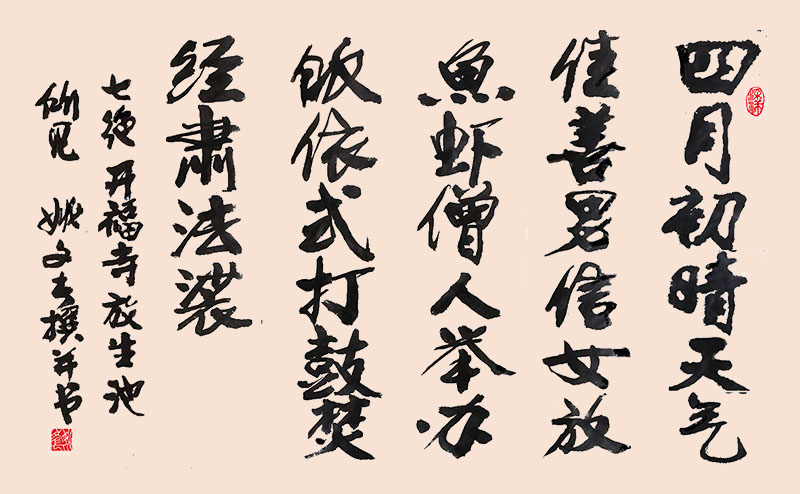 四月初晴天气
佳善男信女放
鱼虾僧人举办
皈依式打鼓焚
经肃法裟
七绝 开福寺放生池
所见 姚文书撰并书